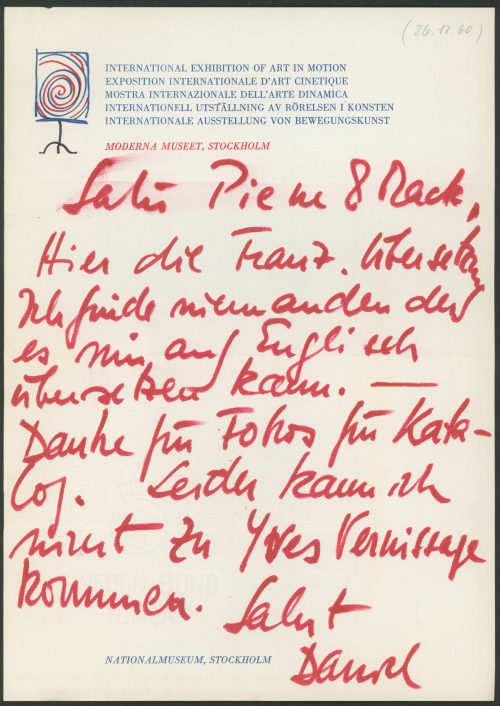 (26.12.60)
INTERNATIONAL EXHIBITION OF ART IN MOTION
EXPOSITION INTERNATIONALE D'ART CINETIQUE
MOSTRA INTERNAZIONALE DELL'ARTE DINAMICA
INTERNATIONELL UTSTÄLLNING AV RÖRELSEN I KONSTEN
INTERNATIONALE AUSSTELLUNG VON BEWEGUNGSKUNST
MODERNA MUSEET, STOCKHOLM
Salü Piene & Mack,
Hier die Franz. Übersetzung
Ich finde niemanden der
es mir auf Englisch
übersetzen kann. —
Danke für Fotos für Kata-
log. Leider kann ich
nicht zu Yves Vernissage
kommen. Salut
Daniel
NATIONALMUSEUM, STOCKHOLM